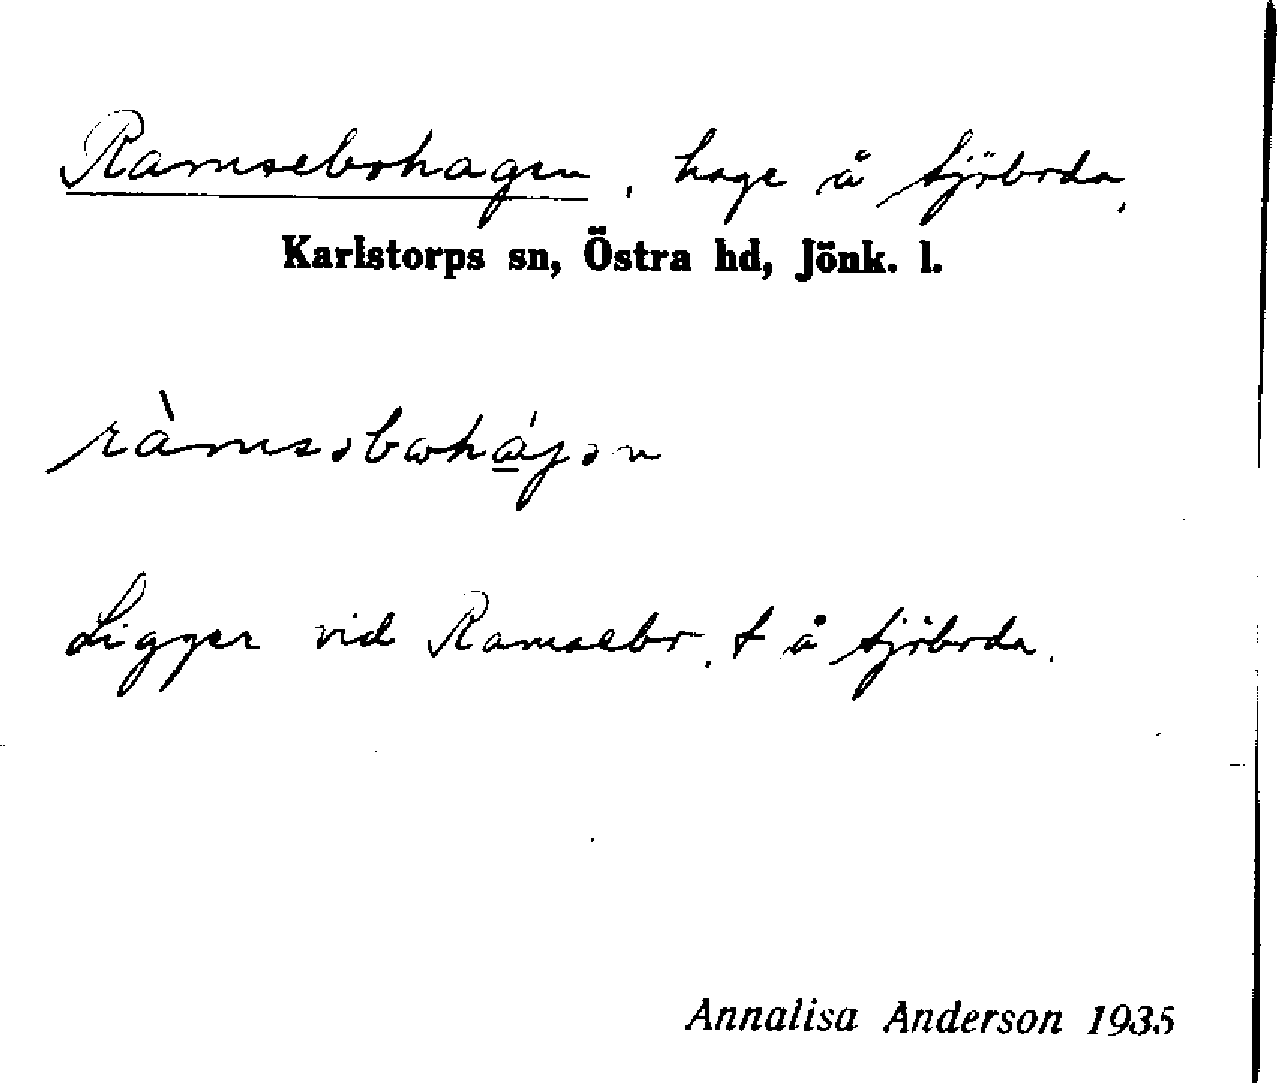 Ramsebohagen, hage å Sjöboda,
Karlstorps sn, Östra hd, Jönk. l.
ràmsəboohájən
Ligger vid Ramsebo, t å Sjöboda.
Annalisa Anderson 1935